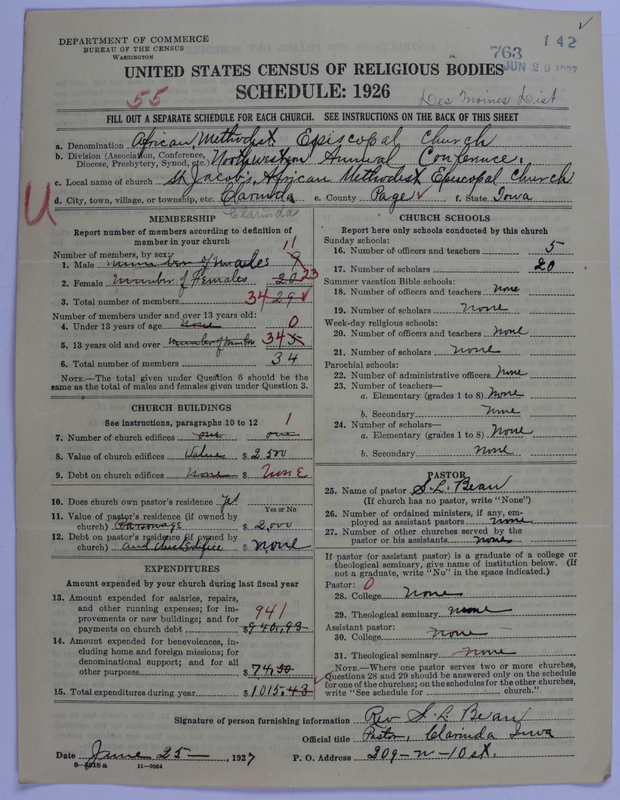 DEPARTMENT OF COMMERCE
BUREAU OF THE CENSUS
WASHINGTON
763
142
JUN 29 1927
UNITED STATES CENSUS OF RELIGIOUS BODIES
SCHEDULE: 1926
55
Des Moines Dist
FILL OUT A SEPARATE SCHEDULE FOR EACH CHURCH. SEE INSTRUCTIONS ON THE BACK OF THIS SHEET
a. Denomination African Methodist Episcopal Church
b. Division (Association, Conference, Diocese, Presbytery, Synod, etc.) Northwestern Annual Conference.
c. Local name of church St Jacobs, African Methodist Episcopal Church
d. City, town, village, or township, etc. Clarinda e. County Page f. State Iowa
Clarinda
U
MEMBERSHIP
Report number of members according to definition of
member in your church
Number of members, by sex: 11
1. Male number of males 9
2. Female number of Females 20 23
3. Total number of members 34 29
Number of members under and over 13 years old:
4. Under 13 years of age None 0
5. 13 years old and over number of members 34
6. Total number of members 34
NOTE.—The total given under Question 6 should be the
same as the total of males and females given under Question 3.
CHURCH BUILDINGS
See instructions, paragraphs 10 to 12 1
7. Number of church edifices one one
8. Value of church edifices Value $ 2500
9. Debt on church edifices None $ none
10. Does church own pastor's residence yes
Yes or No
11. Value of pastor's residence (if owned by
church) Parsonage $ 2,000
12. Debt on pastor's residence (if owned by
church) $ none
EXPENDITURES
Amount expended by your church during last fiscal year
13. Amount expended for salaries, repairs,
and other running expenses; for im-
provements or new buildings; and for 941
payments on church debt $ 940.98
14. Amount expended for benevolences, in-
cluding home and foreign missions; for
denominational support; and for all
other purposes $ 74.50
15. Total expenditures during year $ 1015.48
CHURCH SCHOOLS
Report here only schools conducted by this church
Sunday schools:
16. Number of officers and teachers 5
17. Number of scholars 20
Summer vacation Bible schools:
18. Number of officers and teachers none
19. Number of scholars none
Week-day religious schools:
20. Number of officers and teachers none
21. Number of scholars none
Parochial schools:
22. Number of administrative officers none
23. Number of teachers—
a. Elementary (grades 1 to 8) none
b. Secondary none
24. Number of scholars—
a. Elementary (grades 1 to 8) none
b. Secondary none
PASTOR
25. Name of pastor S. L. Bean
(If church has no pastor, write "None")
26. Number of ordained ministers, if any, em-
ployed as assistant pastors none
27. Number of other churches served by the
pastor or his assistants none
If pastor (or assistant pastor) is a graduate of a college or
theological seminary, give name of institution below. (If
not a graduate, write "No" in the space indicated.)
Pastor: 0
28. College none
29. Theological seminary none
Assistant pastor:
30. College none
31. Theological seminary none
NOTE.—Where one pastor serves two or more churches,
Questions 28 and 29 should be answered only on the schedule
for one of the churches; on the schedules for the other churches,
write "See schedule for church."
Signature of person furnishing information Rev S. L. Bean
Official title Pastor, Clarinda Iowa
Date June 25—, 1927 P. O. Address 209-n-10 st.
8-5218a 11-9054